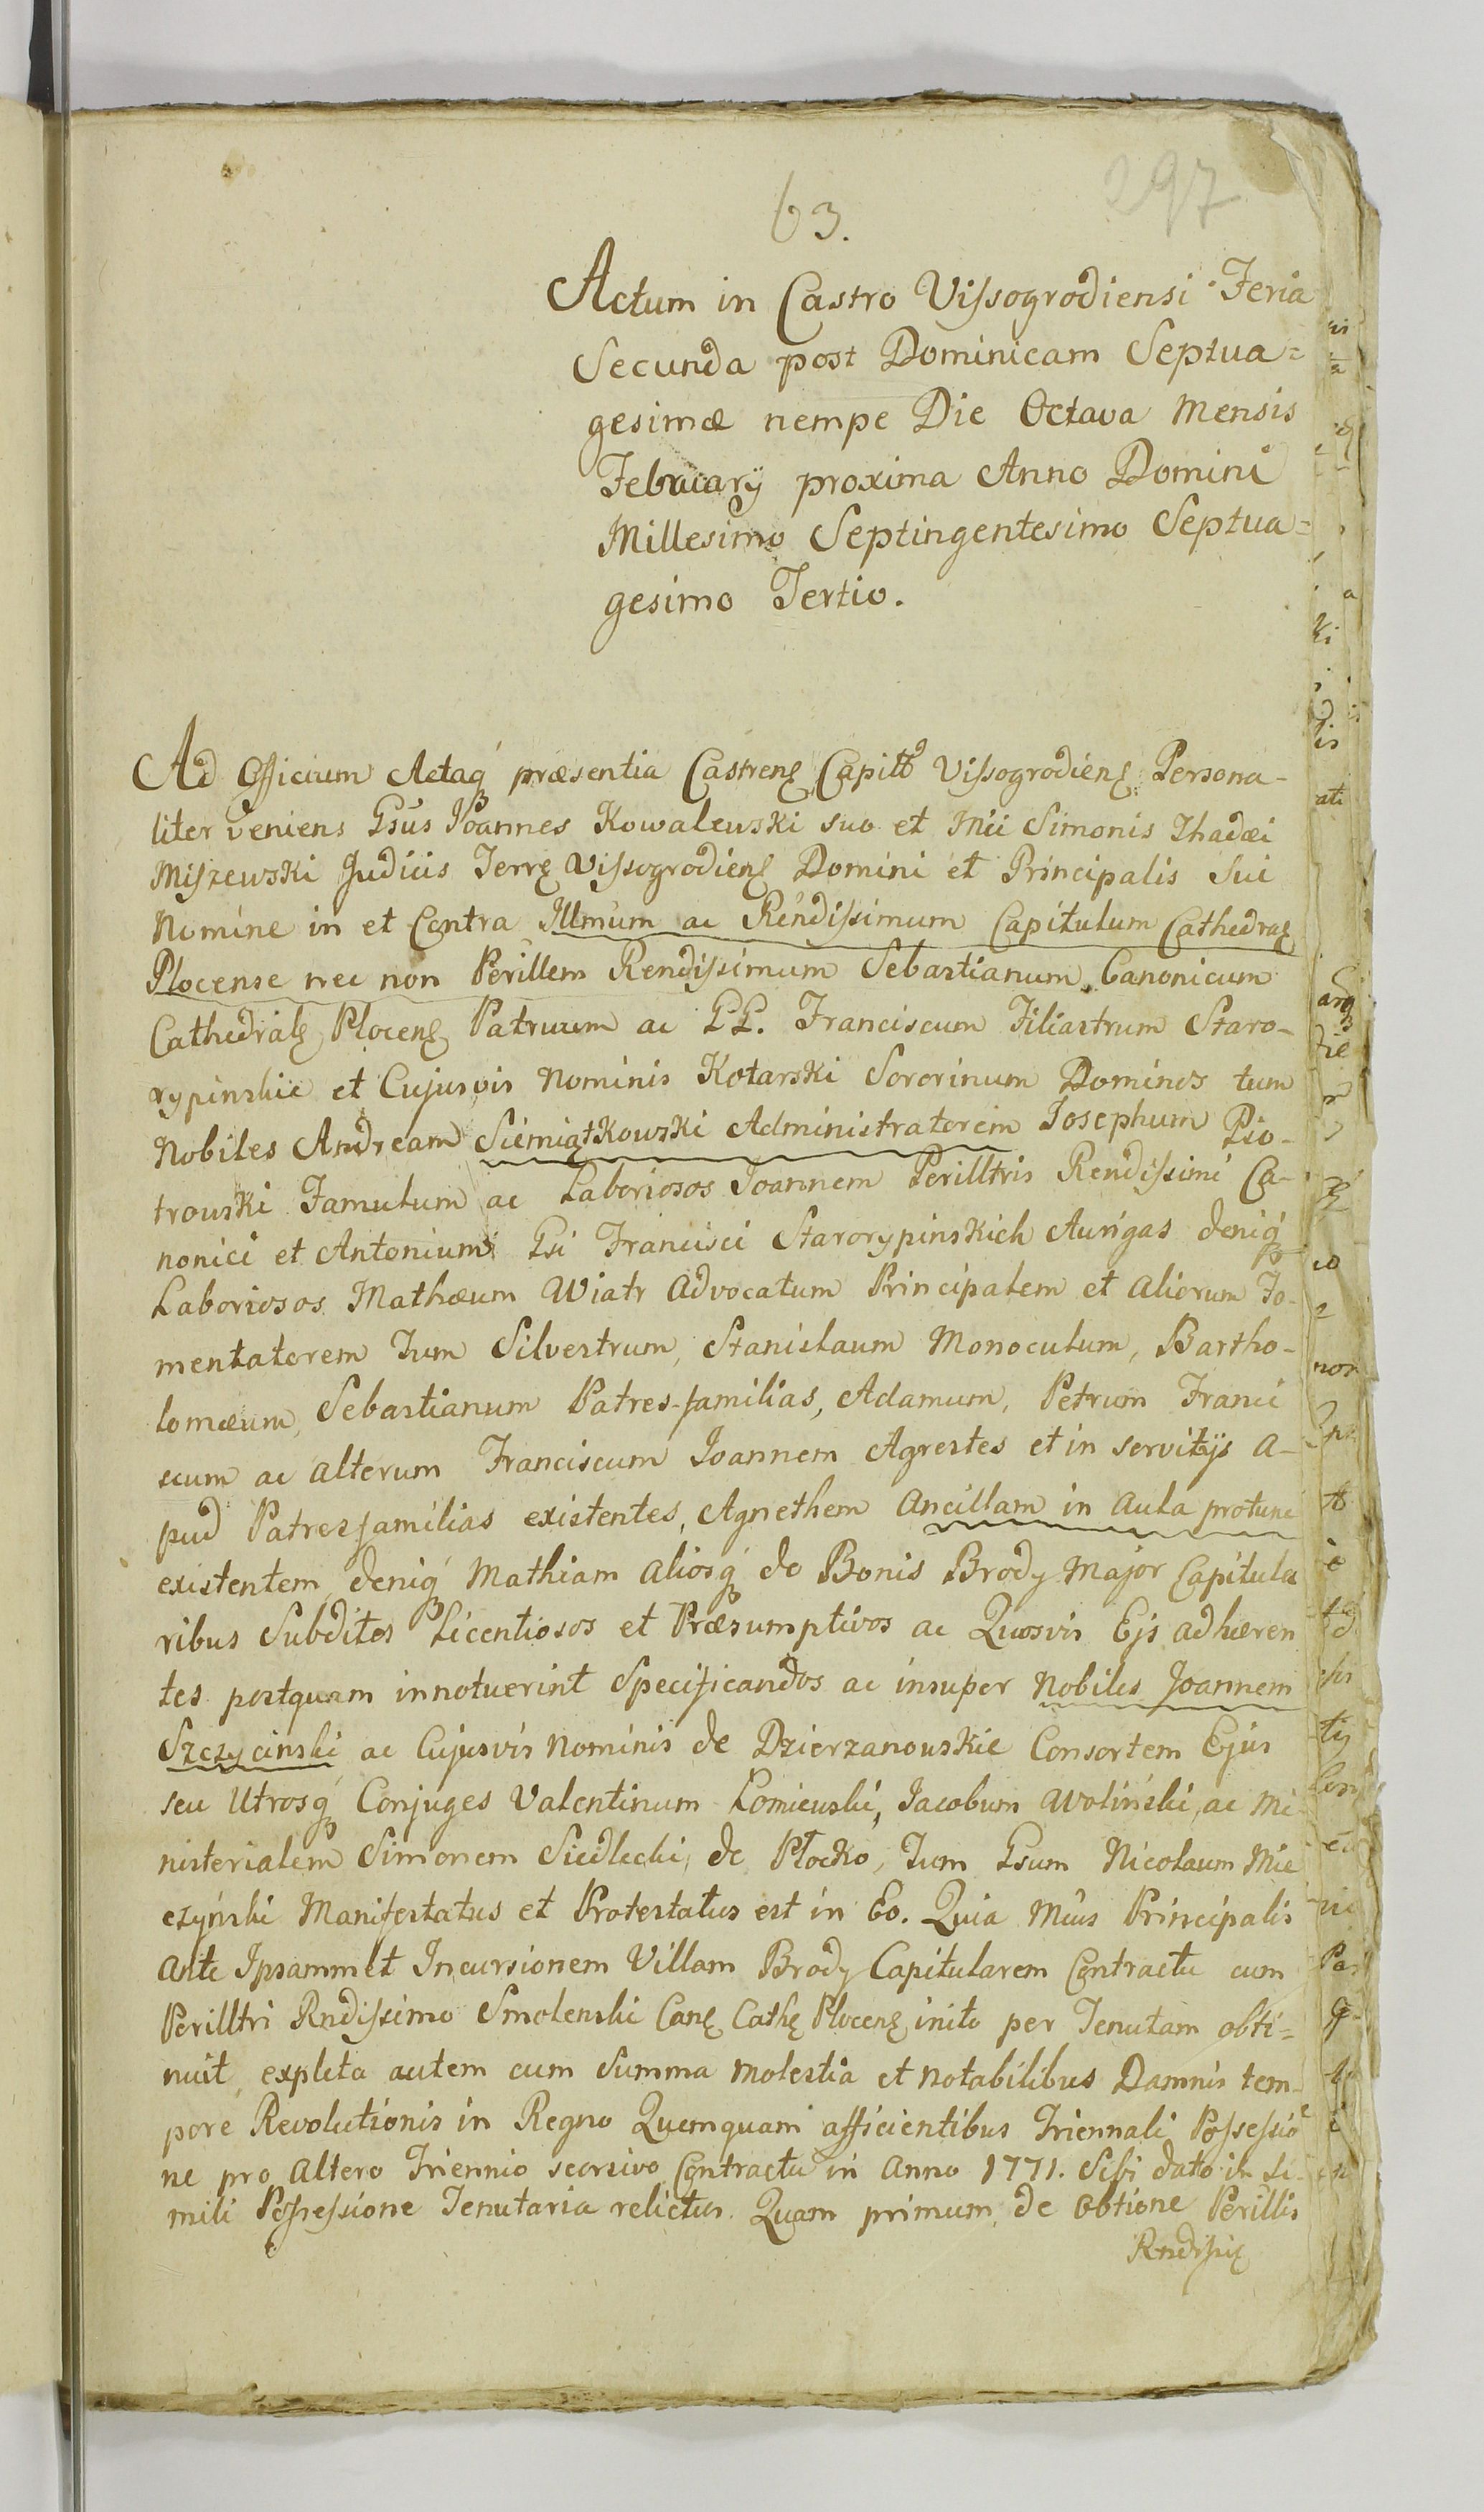 297
63.
Actum in Castro Vissogrodiensi Feria
Secunda post Dominicam Septua=
gesimæ nempe Die Octava Mensis
Februarÿ proxima Anno Domini
Millesimo Septingentesimo Septua=
gesimo Tertio.
Ad Officium Actaq́ præsentia Castrenę Capitło Vissogrodienę Persona-
liter veniens Gsus Joannes Kowalewski suo et Mii Simonis Thadæi
Miszewski Judicis Terrę Vissogrodienę Domini et Principalis Sui
Nomine in et Contra Illmum ac Rendissimum Capitulum Cathedraę
Plocense nec non Perillem Rendissimum Sebastianum Canonicum
Cathedralę Plocenę Patruum ac GG. Franciscum Filiastrum Staro-
rypinskie et Cujusvis Nominis Kotarski Sororinum Dominos tum
Nobiles Andream Siemiątkowski Administratorem Josephum Pio-
trowski Famulum ac Laboriosos Joannem Perilltris Rendissimi Ca-
nonici et Antonium Gsi Francisci Starorypinskich Aurigas deniq́
Laboriosos Mathæum Wiatr Advocatum Principalem et aliorum Fo-
mentatorem Tum Silvestrum, Stanislaum Monoculum, Bartho-
lomæum, Sebastianum Patres-familias, Adamum, Petrum Franci
scum ac alterum Franciscum Joannem Agrestes et in servitÿs a-
pud Patresfamilias existentes, Agnethem Ancillam in Aula protunc
existentem, deniq́ Mathiam aliosq́ de Bonis Brody Major Capitula
ribus Subditos Licentiosos et Præsumptivos ac Quosvis Ejs adhæren
tes postquam innotuerint Specificandos ac insuper Nobiles Joannem
Szczycinski ac Cujusvis Nominis de Dzierzanowskie Consortem Ejus
seu Utrosq́ Conjuges Valentinum Łomiewski, Jacobum Woliński, ac Mi
nisterialem Simonem Siedlecki, de Płocko, Tum Gsum Nicolaum Mie
czyński Manifestatus et Protestatus est in Eo. Quia Mius Principalis
Ante Ipsammet Incursionem Villam Brody Capitularem Contractu cum
Perilltri Rndissimo Smolenski Canę Cathę Plocenę inito per Tenutam obti=
nuit, expleta autem cum Summa molestia et notabilibus Damnis tem-
pore Revolutionis in Regno Quemquam afficientibus Triennali Possessio
ne pro Altero Triennio seorsivo Contractu in Anno 1771. Sibi dato in si-
mili Possessione Tenutaria relictus. Quam primum de Obtione Perillis
Rndissię